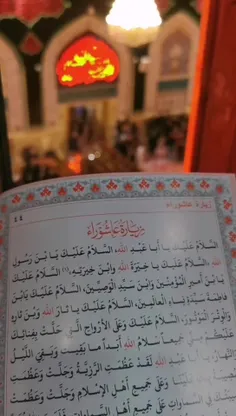 زيارة عاشوراء
٤٤
زِيَارَةُ عَاشُورَاءَ
اَلسَّلَامُ عَلَيْكَ يَا اَبَا عَبْدِ اللهِ، اَلسَّلَامُ عَلَيْكَ يَا بْنَ رَسُولِ
اللهِ، اَلسَّلَامُ عَلَيْكَ يَا خِيَرَةَ اللهِ وَابْنَ خِيَرَتِهِ، (١) اَلسَّلَامُ عَلَيْكَ
يَا بْنَ اَمِيرِ الْمُؤْمِنِينَ وَابْنَ سَيِّدِ الْوَصِيِّينَ، اَلسَّلَامُ عَلَيْكَ يَا بْنَ
فَاطِمَةَ سَيِّدَةِ نِسَاءِ الْعَالَمِينَ، اَلسَّلَامُ عَلَيْكَ يَا ثَارَ اللهِ وَابْنَ ثَارِهِ
وَالْوِتْرَ الْمَوْتُورَ، اَلسَّلَامُ عَلَيْكَ وَعَلَى الْاَرْوَاحِ الَّتِي حَلَّتْ بِفِنَائِكَ
عَلَيْكُمْ مِنِّي جَمِيعاً سَلَامُ اللهِ اَبَداً مَا بَقِيتُ وَبَقِيَ اللَّيْلُ
وَالنَّهَارُ، يَا اَبَا عَبْدِ اللهِ لَقَدْ عَظُمَتِ الرَّزِيَّةُ وَجَلَّتْ وَعَظُمَتِ
الْمُصِيبَةُ عَلَيْنَا وَعَلَى جَمِيعِ اَهْلِ الْاِسْلَامِ وَجَلَّتْ وَعَظُمَتْ